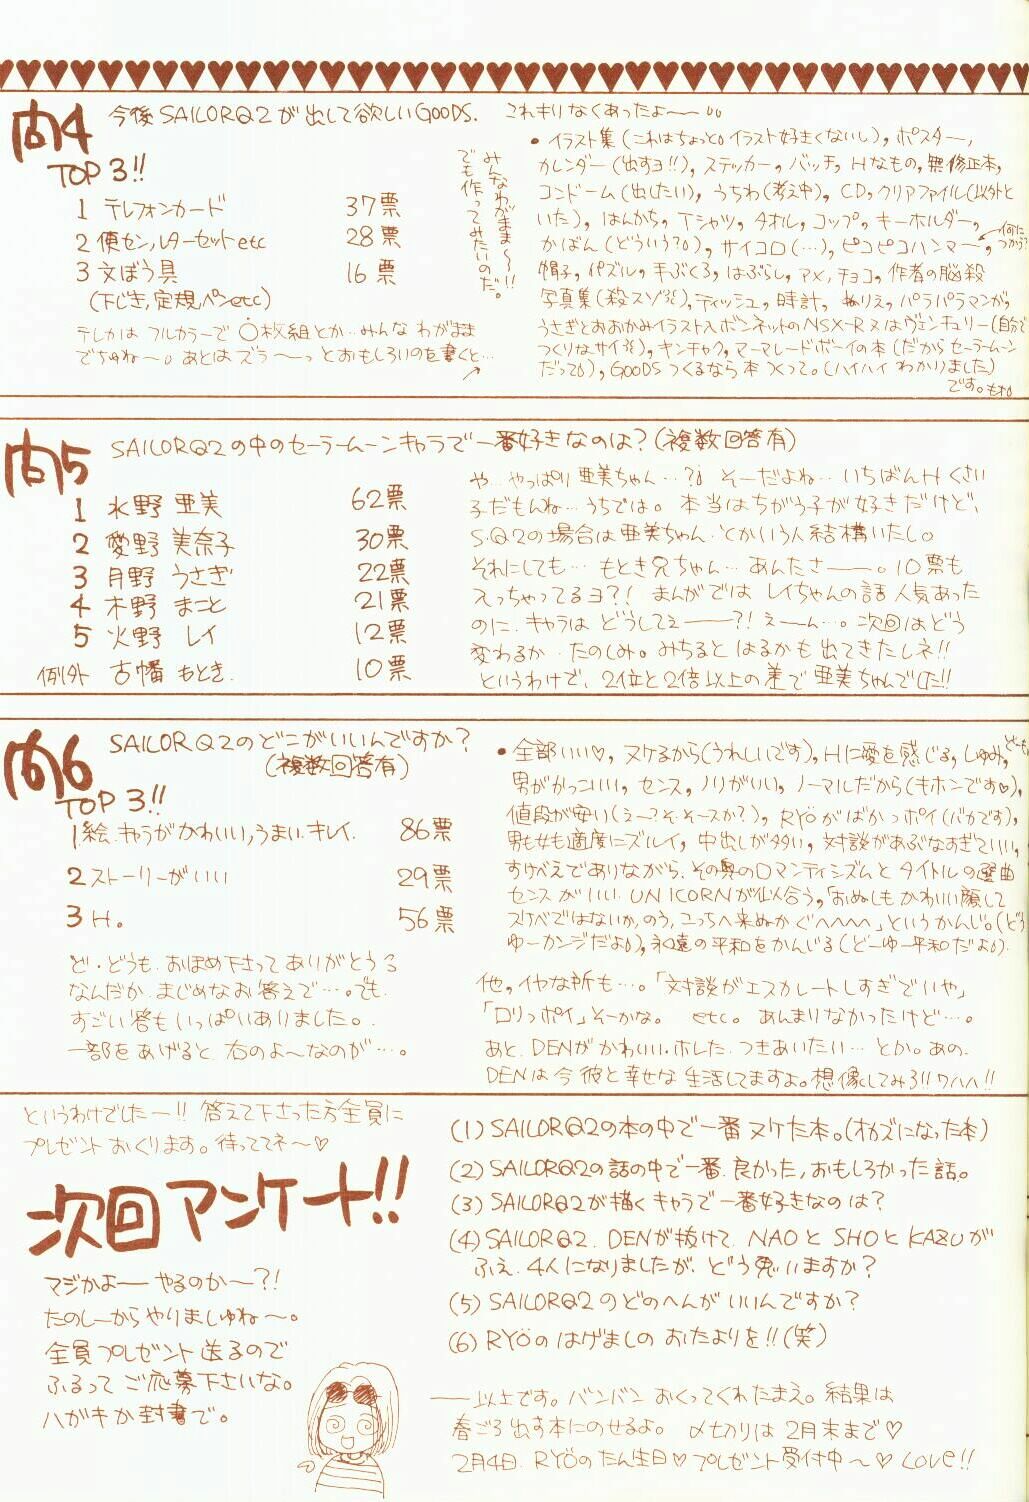 問4 今後SAILORQ2が出して欲しいGOODS.
TOP 3!!
1 テレフォンカード 37票
2 便セン,レターセットetc 28票
3 文ぼう具 16票
(下じき,定規,ペンetc)
みんなわがまま〜!!
でも作ってみたいのだ。
テレカは フルカラーで 〇枚組とか…みんな わがまま
でちゅね〜。あとは ズラ〜〜っと おもしろいのを書くと…
これキリなくあったよ〜〜
・イラスト集(これはちょっと。イラスト好きくないし), ポスター,
カレンダー(出すヨ!!), ステッカー, バッチ, Hなもの, 無修正本,
コンドーム(出したい), うちわ(考え中), CD, クリアファイル(以外と
いた), はんかち, Tシャツ, タオル, コップ, キーホルダー,
かばん(どういう?), サイコロ(…), ピコピコハンマー, ←何につかう?
帽子, パズル, 手ぶくろ, はぶらし, アメ, チョコ, 作者の脳殺
写真集(殺スゾ), ティッシュ, 時計, ぬりえ, パラパラマンガ,
うさぎとおおかみイラスト入ボンネットのNSX-R 又はヴェンチュリー(自分で
つくりなサイ), キンチャク, マーマレードボーイの本(だからセーラームーン
だって), GOODSつくるなら本つくって。(ハイハイ わかりました)
です。
問5 SAILORQ2の中のセーラームーンキャラで一番好きなのは?(複数回答有)
1 水野 亜美 62票
2 愛野 美奈子 30票
3 月野 うさぎ 22票
4 木野 まこと 21票
5 火野 レイ 12票
例外 古幡 もとき. 10票
や…やっぱり 亜美ちゃん…?! そーだよね… いちばん Hくさい
子だもんね…うちでは。本当はちがう子が好きだけど、
S.Q2の場合は亜美ちゃん.とかいう人結構いたし。
それにしても… もとき兄ちゃん… あんたさ――。10票も
入っちゃってるヨ?! まんがでは レイちゃんの話 人気あった
のに.キャラは どうしてえ――?! え――ん…。次回はどう
変わるか.たのしみ。みちると はるかも 出てきたしネ!!
というわけで、2位と2倍以上の差で 亜美ちゃんでした!!
問6 SAILORQ2のどこがいいんですか?
(複数回答有)
TOP 3!!
1.絵.キャラがかわいい,うまい.キレイ. 86票
2 ストーリーがいい 29票
3 H。 56票
ど・どうも.おほめ下さって ありがとう
なんだか.まじめなお答えで…。でも.
すごい答もいっぱいありました。
一部を あげると 右のよ〜なのが…。
・全部いい♡, ヌケるから(うれしいです), Hに愛を感じる, しゅみ,
男がかっこいい, センス, ノリがいい, ノーマルだから(キホンです♡),
値段が安い(えー?そ.そーすか?), RYÖがばかっポイ(バカです),
男も女も適度にズルイ, 中出しが多い, 対談があぶなすぎていい,
すけべえでありながら、その奥のロマンティシズムと タイトルの選曲
センスがいい. UNICORNが似合う,「おぬしもかわいい顔して
スケベではないか,のう,こっちへ来ぬかぐへへへへ」というかんじ。(どう
ゆーカンジだよ), 永遠の平和をかんじる(どーゆー平和だよ).
他,イヤな所も…。「対談がエスカレートしすぎでいや」
「ロリっポイ」そーかな。 etc。あんまりなかったけど…。
あと.DENがかわいい.ホレた.つきあいたい…とか。あの.
DENは今彼と幸せな生活してますよ。想像してみろ!!ワハハ!!
というわけでした〜!! 答えて下さった方全員に
プレゼント おくります。待っててネ〜♡
次回アンケート!!
マジかよ―― やるのか〜?!
たのしーからやりましゅね〜。
全員プレゼント送るので
ふるってご応募下さいな。
ハガキか封書で。
(1) SAILORQ2の本の中で一番ヌケた本。(オカズになった本)
(2) SAILORQ2の話の中で一番.良かった,おもしろかった話。
(3) SAILORQ2が描くキャラで一番好きなのは?
(4) SAILORQ2.DENが抜けて.NAOとSHOとKAZUが
ふえ.4人になりましたが.どう思いますか?
(5) SAILORQ2のどのへんがいいんですか?
(6) RYÖの はげましの おたよりを!!(笑)
――以上です。バンバン おくってくれたまえ。結果は
春ごろ出す本にのせるよ。 〆切りは 2月末まで♡
2月4日.RYÖのたん生日♡プレゼント受付中〜♡ LOVE!!